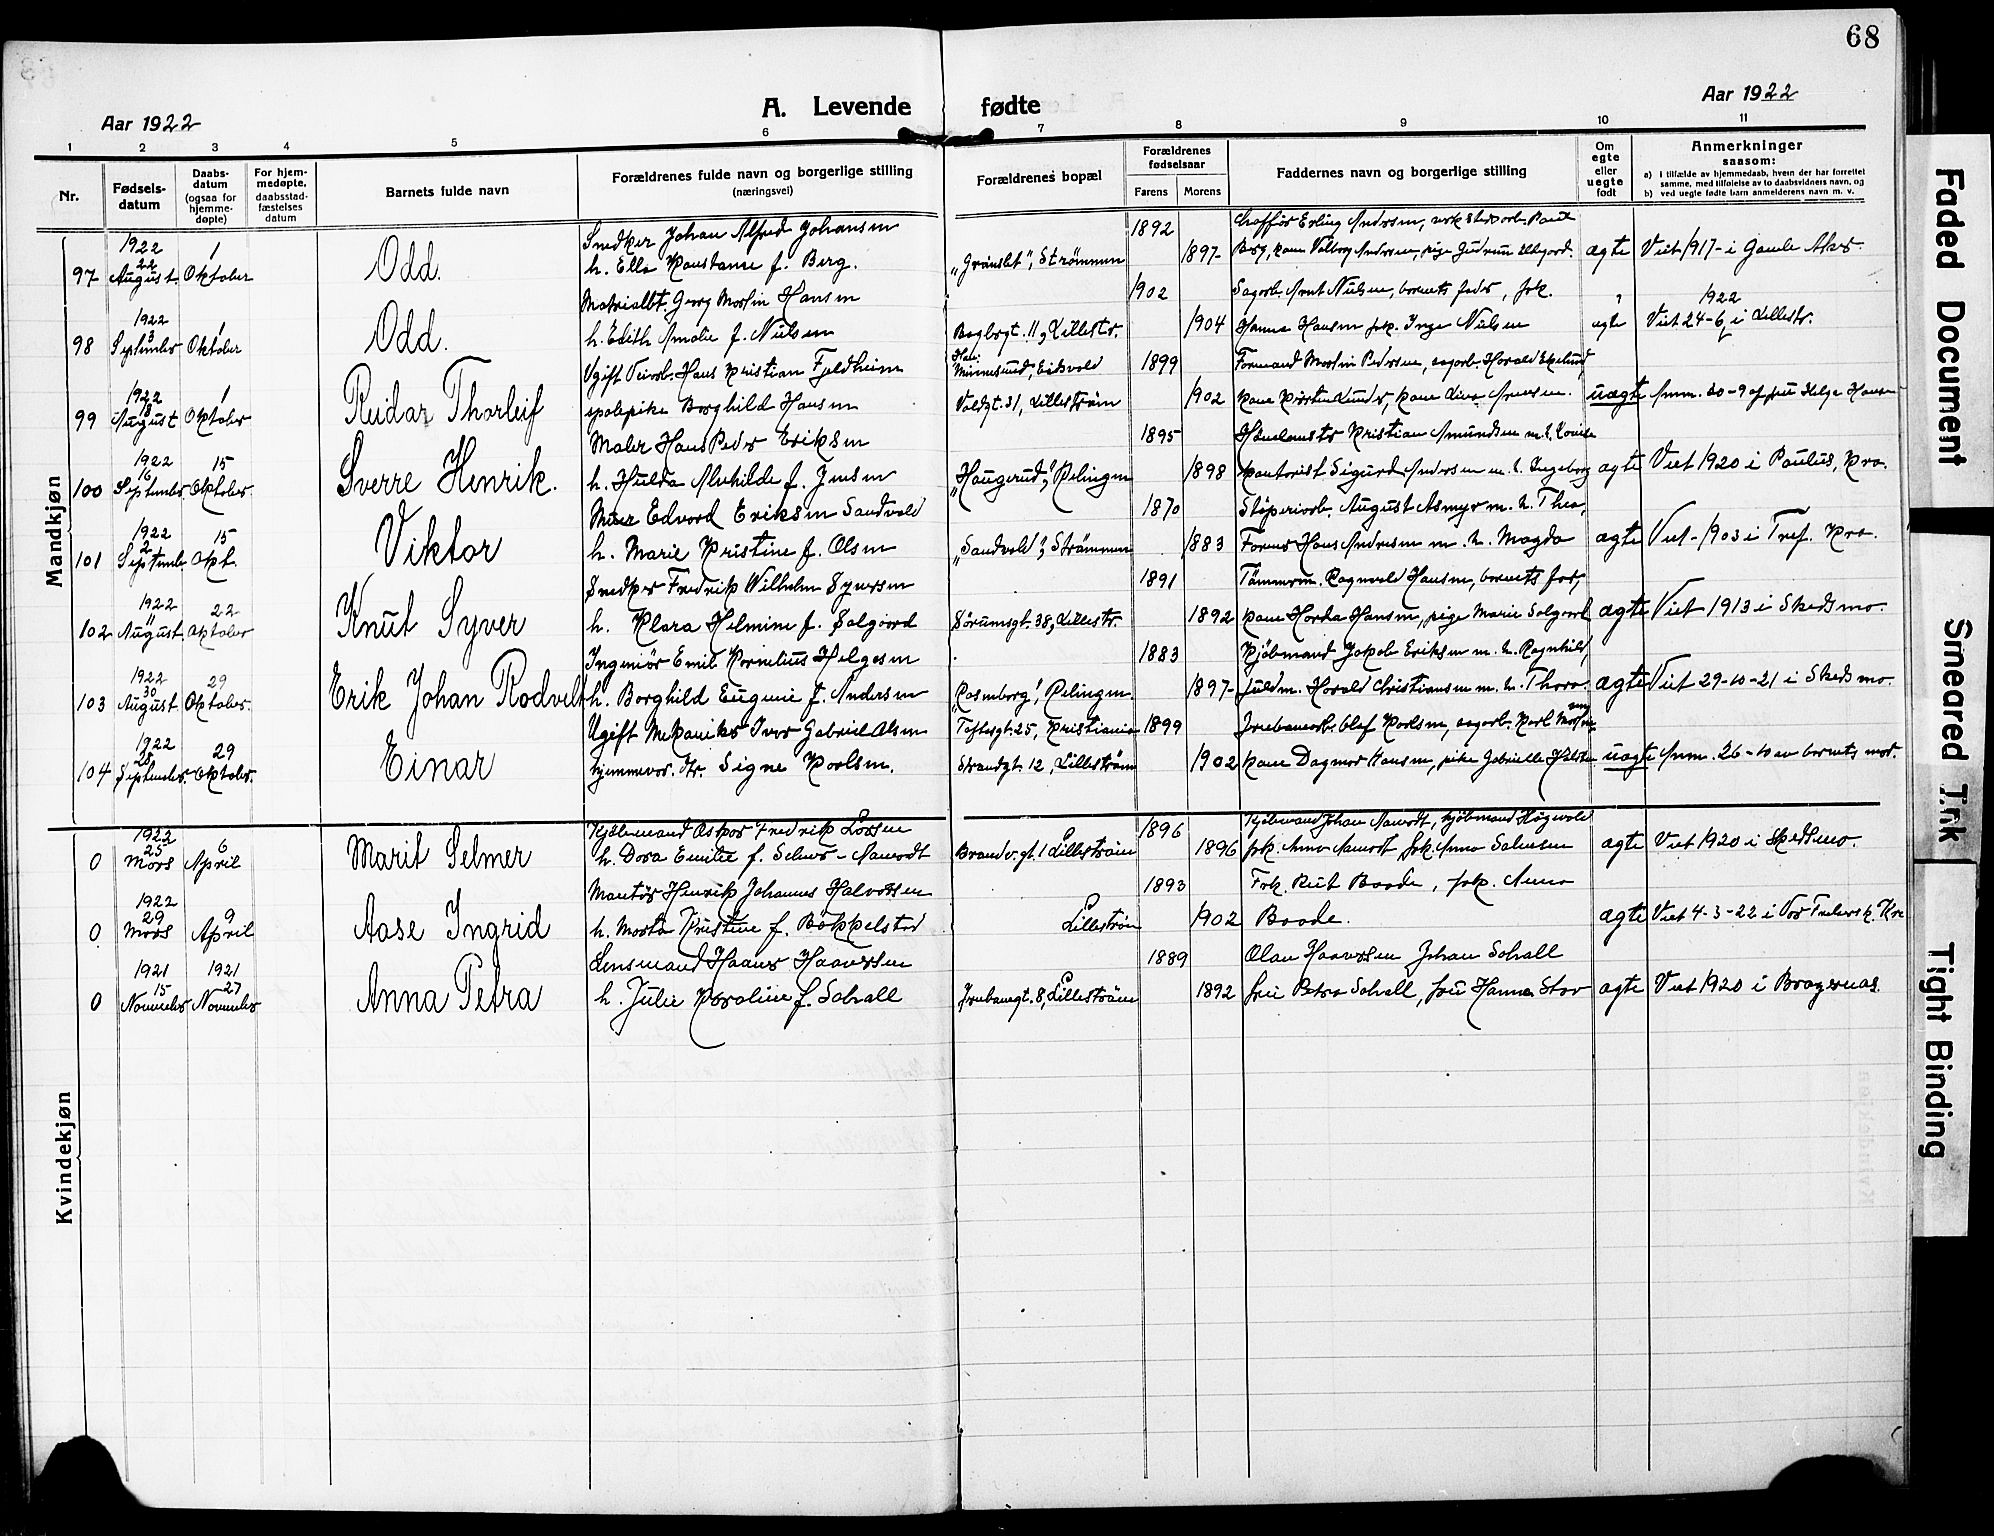 68
Aar 1922
A. Levende fødte
Aar 1922
1 2 3 4 5 6 7 8 9 10 11
Nr.
Fødsels-
datum
Daabs-
datum
(ogsaa for
hjemme-
døpte)
For hjem-
medøpte,
daabsstad-
fæstelses
datum
Barnets fulde navn
Forældrenes fulde navn og borgerlige stilling
(næringsvei)
Forældrenes bopæl
Forældrenes
fødselsaar
Farens Morens
Faddernes navn og borgerlige stilling
Om
egte
eller
uegte
født
Anmerkninger
saasom:
a) i tilfælde av hjemmedaab, hvem der har forrettet
samme, med tilføielse av to daabsvidners navn, og
b) ved uegte fødte barn anmelderens navn m. v.
Mandkjøn
1922 Snedker Johan Alfred Johansen 1892
97 22 August 1 Oktober Odd. h. Ella Konstanse f. Berg. Strømmen 1897 Berg, kone Valborg Andersen, pige Gudrun ægte Viet 1917 i Gamle Aker
1922 Georg Martin Hansen 1902 Nilsen, barnets fader, frk. 1922
98 3 September 1 Oktober Odd. h. Edith Amalie f. Nilsen 11, Lillestr. 1904 Hanna Hansen frk. Inga Nilsen ægte Viet 24-6 i Lillestr.
1922 Ugift Hans Kristian Fjeldheim Minnesund, Eidsvold 1899 Formand Martin Pedersen, Harald Ekelund
99 18 August 1 Oktober Reidar Thorleif Borghild Hansen Voldgt. 31, Lillestrøm 1902 uægte Anm. 30-9 af fru Helga Hansen
1922 Maler Hans Peder Eriksen 1895 Kristian Amundsen m. h. Louise
100 16 September 15 Oktober. Sverre Henrik. h. Hulda Alvhilde f. Jensen „Haugerud", Rælingen 1898 Sigurd Andersen m. h. Ingeborg ægte Viet 1920 i Paulus, Kra.
1922 Edvard Eriksen Sandvold 1870 Støperiarb. August Asmyr m. h. Thea,
101 2 September 15 Okt. Viktor h. Marie Kristine f. Olsen „Sandvold", Strømmen 1883 Former Hans Andresen m. h. Magda ægte Viet 1903 i Tref. Kra.
1922 Snedker Fredrik Wilhelm Syversen 1891 Tømmerm. Ragnvald Hansen, barnets far,
102 11 August 22 Oktober Knut Syver h. Klara Helmine f. Solgaard Sørumsgt. 38, Lillestr. 1892 kone Harda Hansen, pige Marie Solgaard ægte Viet 1913 i Skedsmo.
1922 Ingeniør Emil Kornelius Helgesen 1883 Kjøbmand Jakob Eriksen m. h. Ragnhild,
103 30 August 29 Oktober. Erik Johan Rodvelt h. Borghild Eugenie f. Andersen „Rosenborg", Rælingen 1897 Guldm. Harald Christiansen m. h. Thora. ægte Viet 29-10-21 i Skedsmo.
1922 Ugift Mekaniker Ivar Gabriel Olsen Toftesgt. 25, Kristiania 1899 Jernbanearb. Olaf Karlsen, Karl
104 28 September. 29 Oktober. Einar hjemmevær. dtr. Signe Karlsen. Strandgt. 12, Lillestrøm 1902 kone Dagmar Hansen, pike Gabrielle uægte Anm. 26-10 av barnets mor.
Kvindekjøn
1922 Kjøbmand Oskar Fredrik Larsen 1896 Kjøbmand Johan Namodt, kjøbmand
0 25 Mars 6 April Marit Selmer h. Dora Emilie f. Selmer-Aamodt 1 Lillestrøm 1896 frk. Anna Aamodt frk. Anna ægte Viet 1920 i Skedsmo.
1922 Montør Henrik Johannes Halvorsen 1893 Frk. Rut Baade, frk. Anna
0 29 Mars 9 April Aase Ingrid h. Marta Kristine f. Bakkelstad Lillestrøm 1902 Baade. ægte Viet 4-3-22 i Vor Frelsers k. Kra
1921 1921 Lensmand Haaver Haaversen 1889 Olan Haaversen Johan Solvall
0 15 November 27 November Anna Petra h. Julie Karoline f. Solvall Jernbanegt. 8, Lillestrøm 1892 fru Petra Solvall, fru Hanna Stav ægte Viet 1920 i Bragernæs.
Faded Document
Smeared Ink
Tight Binding